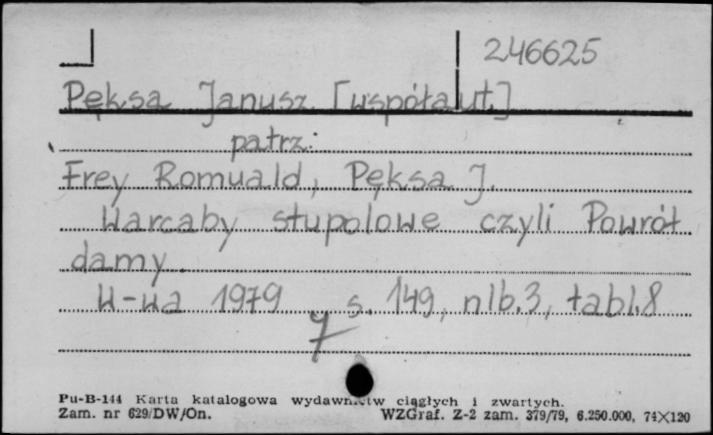 246625
Pęksa Janusz [współaut.]
patrz:
Frey Romuald, Pęksa J.
Warcaby stupolowe czyli Powrót
damy.
W-wa 1979 s. 149, nlb.3, tabl.8
7
Pu-B-144 Karta katalogowa wydawnictw ciągłych i zwartych.
Zam. nr 629/DW/On. WZGraf. Z-2 zam. 379/79, 6.250.000, 74×120